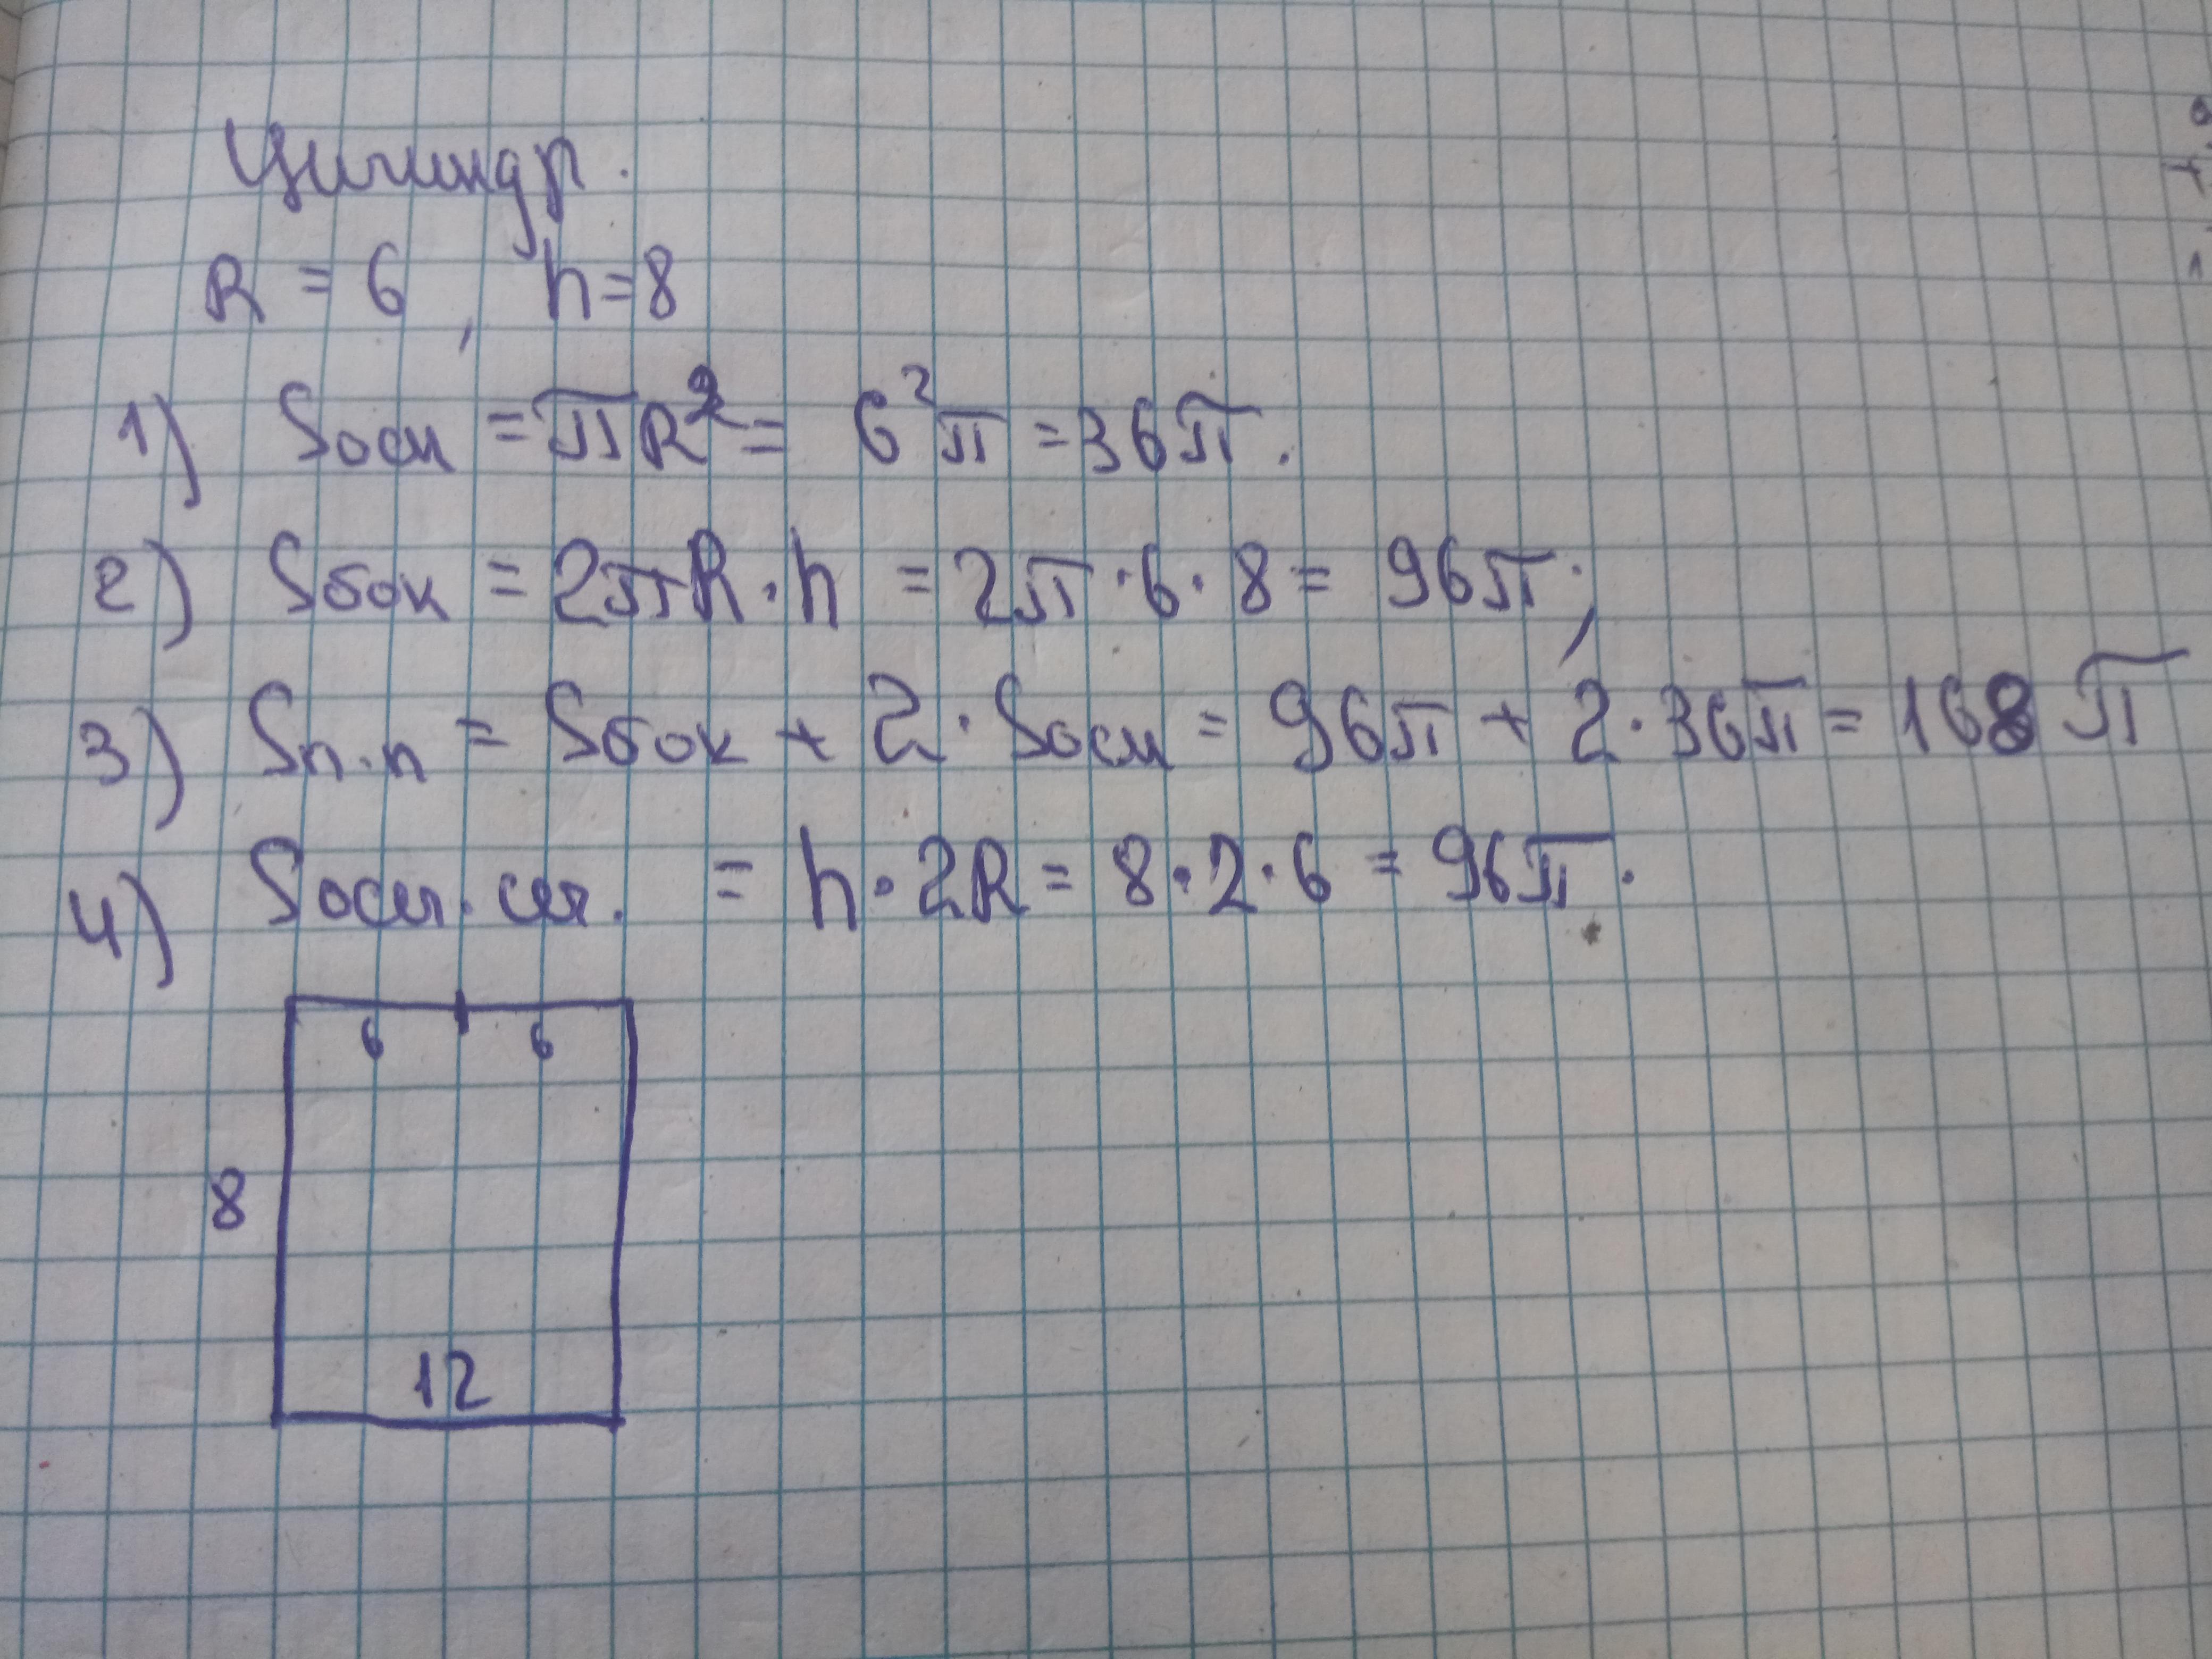 Цилиндр.
R = 6, h = 8
1) Sосн = πR² = 6²π = 36π.
2) Sбок = 2πR · h = 2π · 6 · 8 = 96π;
3) Sп.п = Sбок + 2 · Sосн = 96π + 2 · 36π = 168π
4) Sосн. сеч. = h · 2R = 8 · 2 · 6 = 96π.
6 6
8
12